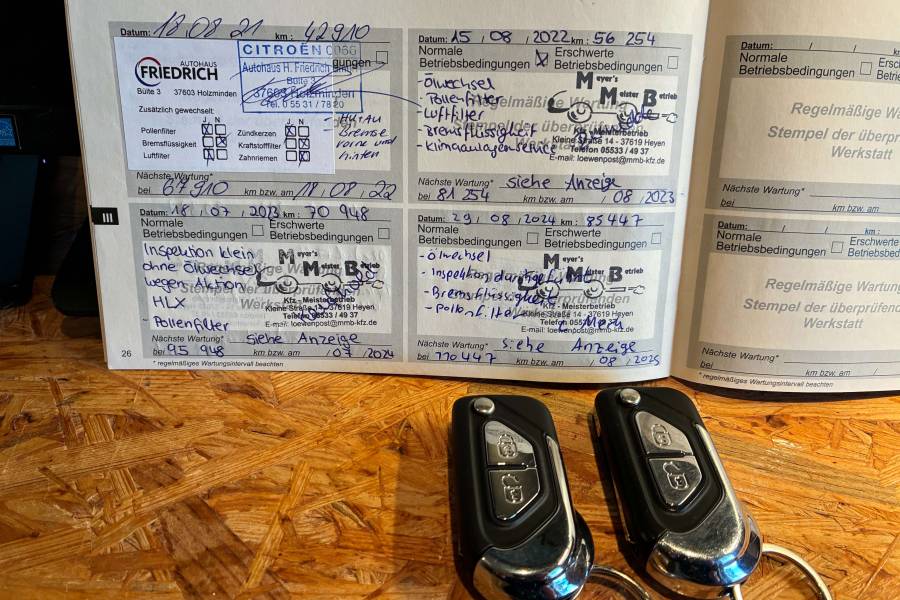 Datum: 18.08.21 km: 42910
AUTOHAUS
FRIEDRICH
Bülte 3 37603 Holzminden
CITROËN
Autohaus H. Friedrich
Bülte 3
37603 Holzminden
Tel. 0 55 31 / 78 20
Zusätzlich gewechselt:
J N J N
Pollenfilter Zündkerzen
Bremsflüssigkeit Kraftstofffilter
Luftfilter Zahnriemen
- HU + AU
- Bremse
vorne und
hinten
Nächste Wartung*
bei 67910 km bzw. am 18, 08, 22
Datum: 15, 08, 2022 km: 56 254
Normale Betriebsbedingungen
Erschwerte Betriebsbedingungen
- Ölwechsel
- Pollenfilter
- Luftfilter
- Bremsflüssigkeit
- Klimaanlagenservice
Meyer's
Meister Betrieb
Kfz - Meisterbetrieb
Kleine Straße 14 - 37619 Heyen
Telefon 05533 / 49 37
E-mail: loewenpost@mmb-kfz.de
Nächste Wartung* siehe Anzeige
bei 81 254 km bzw. am , 08, 2023
Datum: 18, 07, 2023 km: 70 948
Normale Betriebsbedingungen
Erschwerte Betriebsbedingungen
Inspektion klein
ohne Ölwechsel
wegen Aktion
HLX
- Pollenfilter
Meyer's
Meister Betrieb
Kfz - Meisterbetrieb
Kleine Straße 14 - 37619 Heyen
Telefon 05533 / 49 37
E-mail: loewenpost@mmb-kfz.de
Nächste Wartung* siehe Anzeige
bei 95 948 km bzw. am , 07, 2024
26
* regelmäßiges Wartungsintervall beachten
Datum: 29, 08, 2024 km: 85447
Normale Betriebsbedingungen
Erschwerte Betriebsbedingungen
- Ölwechsel
- Inspektion
- Bremsflüssigkeit
- Pollenfilter
Meyer's
Meister Betrieb
Kfz - Meisterbetrieb
Kleine Straße 14 - 37619 Heyen
Telefon 05533 / 49 37
E-mail: loewenpost@mmb-kfz.de
Nächste Wartung* siehe Anzeige
bei 110 447 km bzw. am , 08, 2025
III
Datum: / / km:
Normale Betriebsbedingungen
Regelmäßige Wartung
Stempel der
Werkstatt
Nächste Wartung*
bei km bzw. am
Datum: / / km:
Normale Betriebsbedingungen
Regelmäßige
Stempel der überprüfenden
Werkstatt
Nächste Wartung*
bei km bzw. am /
* regelmäßiges Wartungsintervall beachten